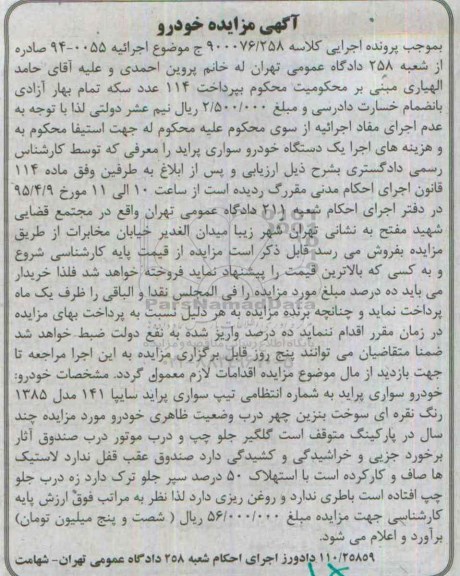 آگهی مزایده خودرو
بموجب پرونده اجرایی کلاسه ۹۰۰۰۷۶/۲۵۸ ج موضوع اجرائیه ۰۰۵۵-۹۴ صادره
از شعبه ۲۵۸ دادگاه عمومی تهران له خانم پروین احمدی و علیه آقای حامد
الهیاری مبنی بر محکومیت محکوم بپرداخت ۱۱۴ عدد سکه تمام بهار آزادی
بانضمام خسارت دادرسی و مبلغ ۲/۵۰۰/۰۰۰ ریال نیم عشر دولتی لذا با توجه به
عدم اجرای مفاد اجرائیه از سوی محکوم علیه محکوم له جهت استیفا محکوم به
و هزینه های اجرا یک دستگاه خودرو سواری پراید را معرفی که توسط کارشناس
رسمی دادگستری بشرح ذیل ارزیابی و پس از ابلاغ به طرفین وفق ماده ۱۱۴
قانون اجرای احکام مدنی مقررگ ردیده است از ساعت ۱۰ الی ۱۱ مورخ ۹۵/۴/۹
در دفتر اجرای احکام شعبه ۲۱۱ دادگاه عمومی تهران واقع در مجتمع قضایی
شهید مفتح به نشانی تهران شهر زیبا میدان الغدیر خیابان مخابرات از طریق
مزایده بفروش می رسد قابل ذکر است مزایده از قیمت پایه کارشناسی شروع
و به کسی که بالاترین قیمت را پیشنهاد نماید فروخته خواهد شد فلذا خریدار
می باید ده درصد مبلغ مورد مزایده را فی المجلس نقدا و الباقی را ظرف یک ماه
پرداخت نماید و چنانچه برنده مزایده به هر دلیل نسبت به پرداخت بهای مزایده
در زمان مقرر اقدام ننماید ده درصد واریز شده به نفع دولت ضبط خواهد شد
ضمنا متقاضیان می توانند پنج روز قابل برگزاری مزایده به این اجرا مراجعه تا
جهت بازدید از مال موضوع مزایده اقدامات لازم معمول گردد. مشخصات خودرو:
خودرو سواری پراید به شماره انتظامی تیپ سواری پراید سایپا ۱۴۱ مدل ۱۳۸۵
رنگ نقره ای سوخت بنزین چهر درب وضعیت ظاهری خودرو مورد مزایده چند
سال در پارکینگ متوقف است گلگیر جلو چپ و درب موتور درب صندوق آثار
برخورد جزیی و خراشیدگی و کشیدگی دارد صندوق عقب قفل ندارد لاستیک
ها صاف و کارکرده است با استهلاک ۵۰ درصد سپر جلو ترک دارد زه درب جلو
چپ افتاده است باطری ندارد و روغن ریزی دارد لذا نظر به مراتب فوق ارزش پایه
کارشناسی جهت مزایده مبلغ ۵۶/۰۰۰/۰۰۰ ریال ( شصت و پنج میلیون تومان)
برآورد و اعلام می شود.
۱۱۰/۲۵۸۵۹ دادورز اجرای احکام شعبه ۲۵۸ دادگاه عمومی تهران- شهامت